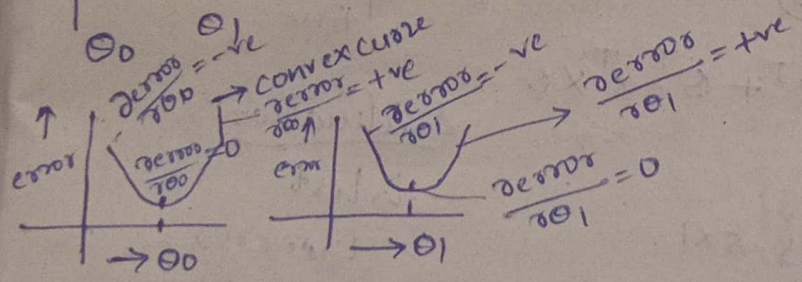 θ0 θ1
∂error/∂θ0 = -ve
→ convex curve
∂error/∂θ0 = +ve
∂error/∂θ0 = 0
↑ error
→ θ0
∂error/∂θ1 = -ve
∂error/∂θ1 = +ve
∂error/∂θ1 = 0
↑ error
→ θ1